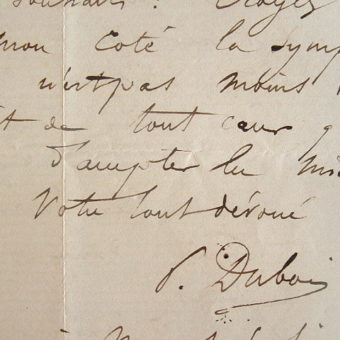 souhaits. Croyez
mon coté la symp
n'est pas moins
et de tout cœur q
d'accepter les
Votre tout dévoué
P. Dubois
à